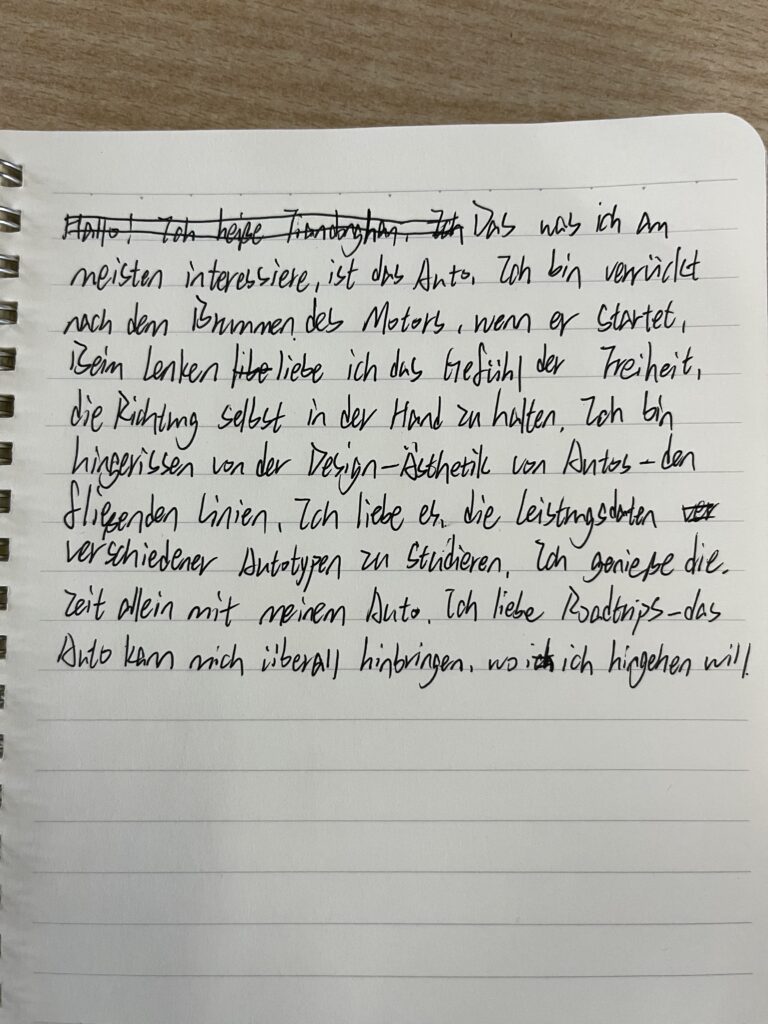 Hallo! Ich heiße Tiandonghan. Ich Das was ich am
meisten interessiere, ist das Auto. Ich bin verrückt
nach dem Brummen des Motors, wenn er startet,
Beim Lenken libe liebe ich das Gefühl der Freiheit,
die Richtung selbst in der Hand zu halten. Ich bin
hingerissen von der Design-Ästhetik von Autos-den
fließenden Linien. Ich liebe es, die Leistungsdaten ver
verschiedener Autotypen zu studieren. Ich genieße die
Zeit allein mit meinem Auto. Ich liebe Roadtrips-das
Auto kann mich überall hinbringen, wo ich ich hingehen will.